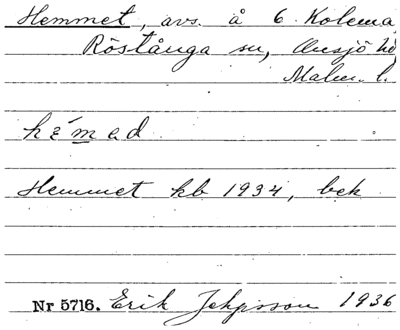 Hemmet, avs. å 6 Kolema
Röstånga sn, Onsjö hd,
Malm. l.
hémad
Hemmet kb 1934, bek
Nr 5716. Erik 1936